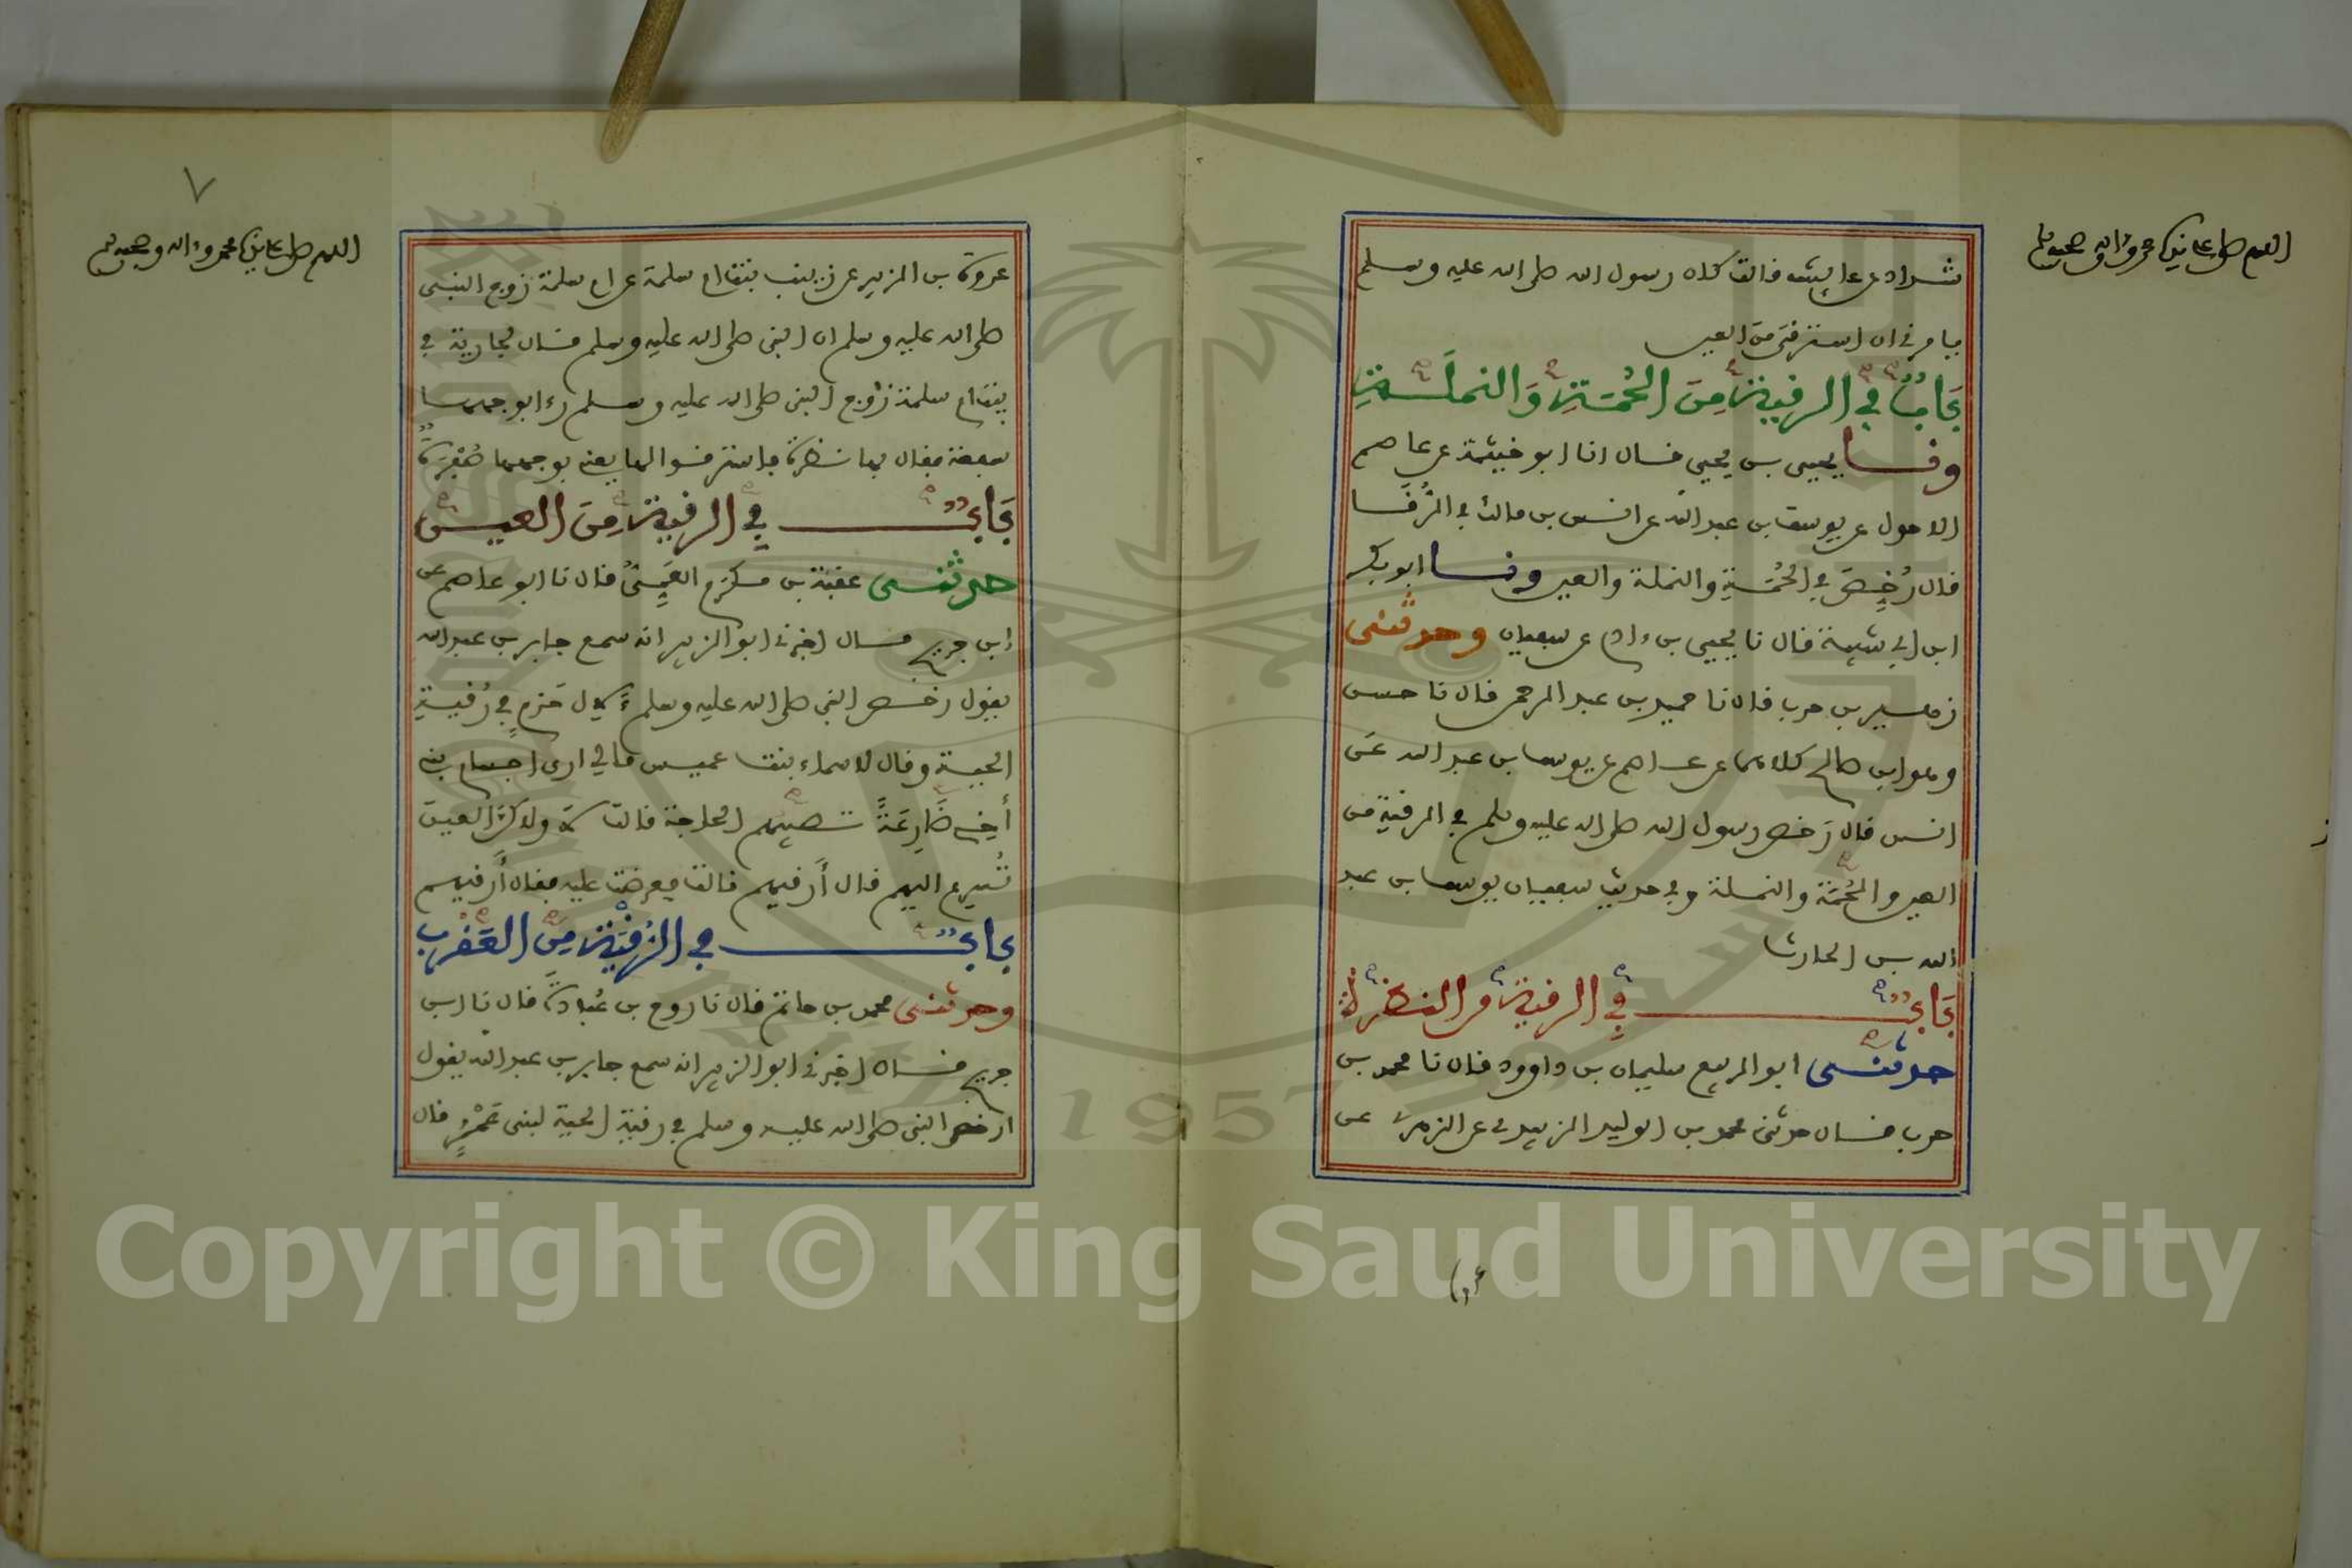 اللهم صل على سيدنا محمد وءاله وصحبه وسلم
شداد عن عايشة قالت كان رسول الله صلى الله عليه وسلم
يامرني ان استرقي من العين
بَابٌ في الرقية مِنَ الحُمَةِ وَالنملَةِ
ونا يحيى بن يحيى قال انا ابو خيثمة عن عاصم
الاحول عن يوسف بن عبد الله عن انس بن مالك في الرُّقَا
قال رُخِّصَ في الحُمَةِ والنملة والعين ونا ابو بكر
ابن ابي شيبة قال نا يحيى بن ءادم عن سفيان وحدثني
زهير بن حرب قال نا حميد بن عبد الرحمن قال نا حسن
وهو ابن صالح كلاهما عن عاصم عن يوسف بن عبد الله عن
انس قال رَخص رسول الله صلى الله عليه وسلم في الرقية من
العين والحُمَة والنملة وفي حديث سفيان يوسف بن عبد
الله بن الحارث
بَابٌ في الرقية من النظرة
حدثني ابو الربيع سليمان بن داوود قال نا محمد بن
حرب قال حدثني محمد بن الوليد الزبيدي عن الزهري عن
عروة
٧
اللهم صل على سيدنا محمد وءاله وصحبه وسلم
عروة بن الزبير عن زينب بنت ام سلمة عن ام سلمة زوج النبي
صلى الله عليه وسلم ان النبي صلى الله عليه وسلم قال لجارية في
بيت ام سلمة زوج النبي صلى الله عليه وسلم رءا بوجهها
سفعة فقال بها نظرة فاسترقوا لها يعني بوجهها صُفْرَةً
بَابٌ في الرقية مِنَ العين
حدثني عقبة بن مكرم العَمِّيُّ قال نا ابو عاصم عن
ابن جريج قال اخبرني ابو الزبير انه سمع جابر بن عبد الله
يقول رخص النبي صلى الله عليه وسلم لِآل حَزمٍ في رُقيةِ
الحية وقال لاسماء بنت عميس ما لي ارى اجسام بني
أخي ضَارِعَةً تصيبهم الحاجة قالت لا ولاكن العين
تُسرع اليهم قال أَرقيهم قالت فعرضت عليه فقال أَرقيهم
بابٌ في الرُّقْيَةِ مِنَ العَقْرَب
وحدثني محمد بن حاتم قال نا روح بن عُبادةَ قال نا ابن
جريج قال اخبرني ابو الزبير انه سمع جابر بن عبد الله يقول
ارخص النبي صلى الله عليه وسلم في رقية الحية لبني عَمْرٍو قال
Copyright © King Saud University
1957